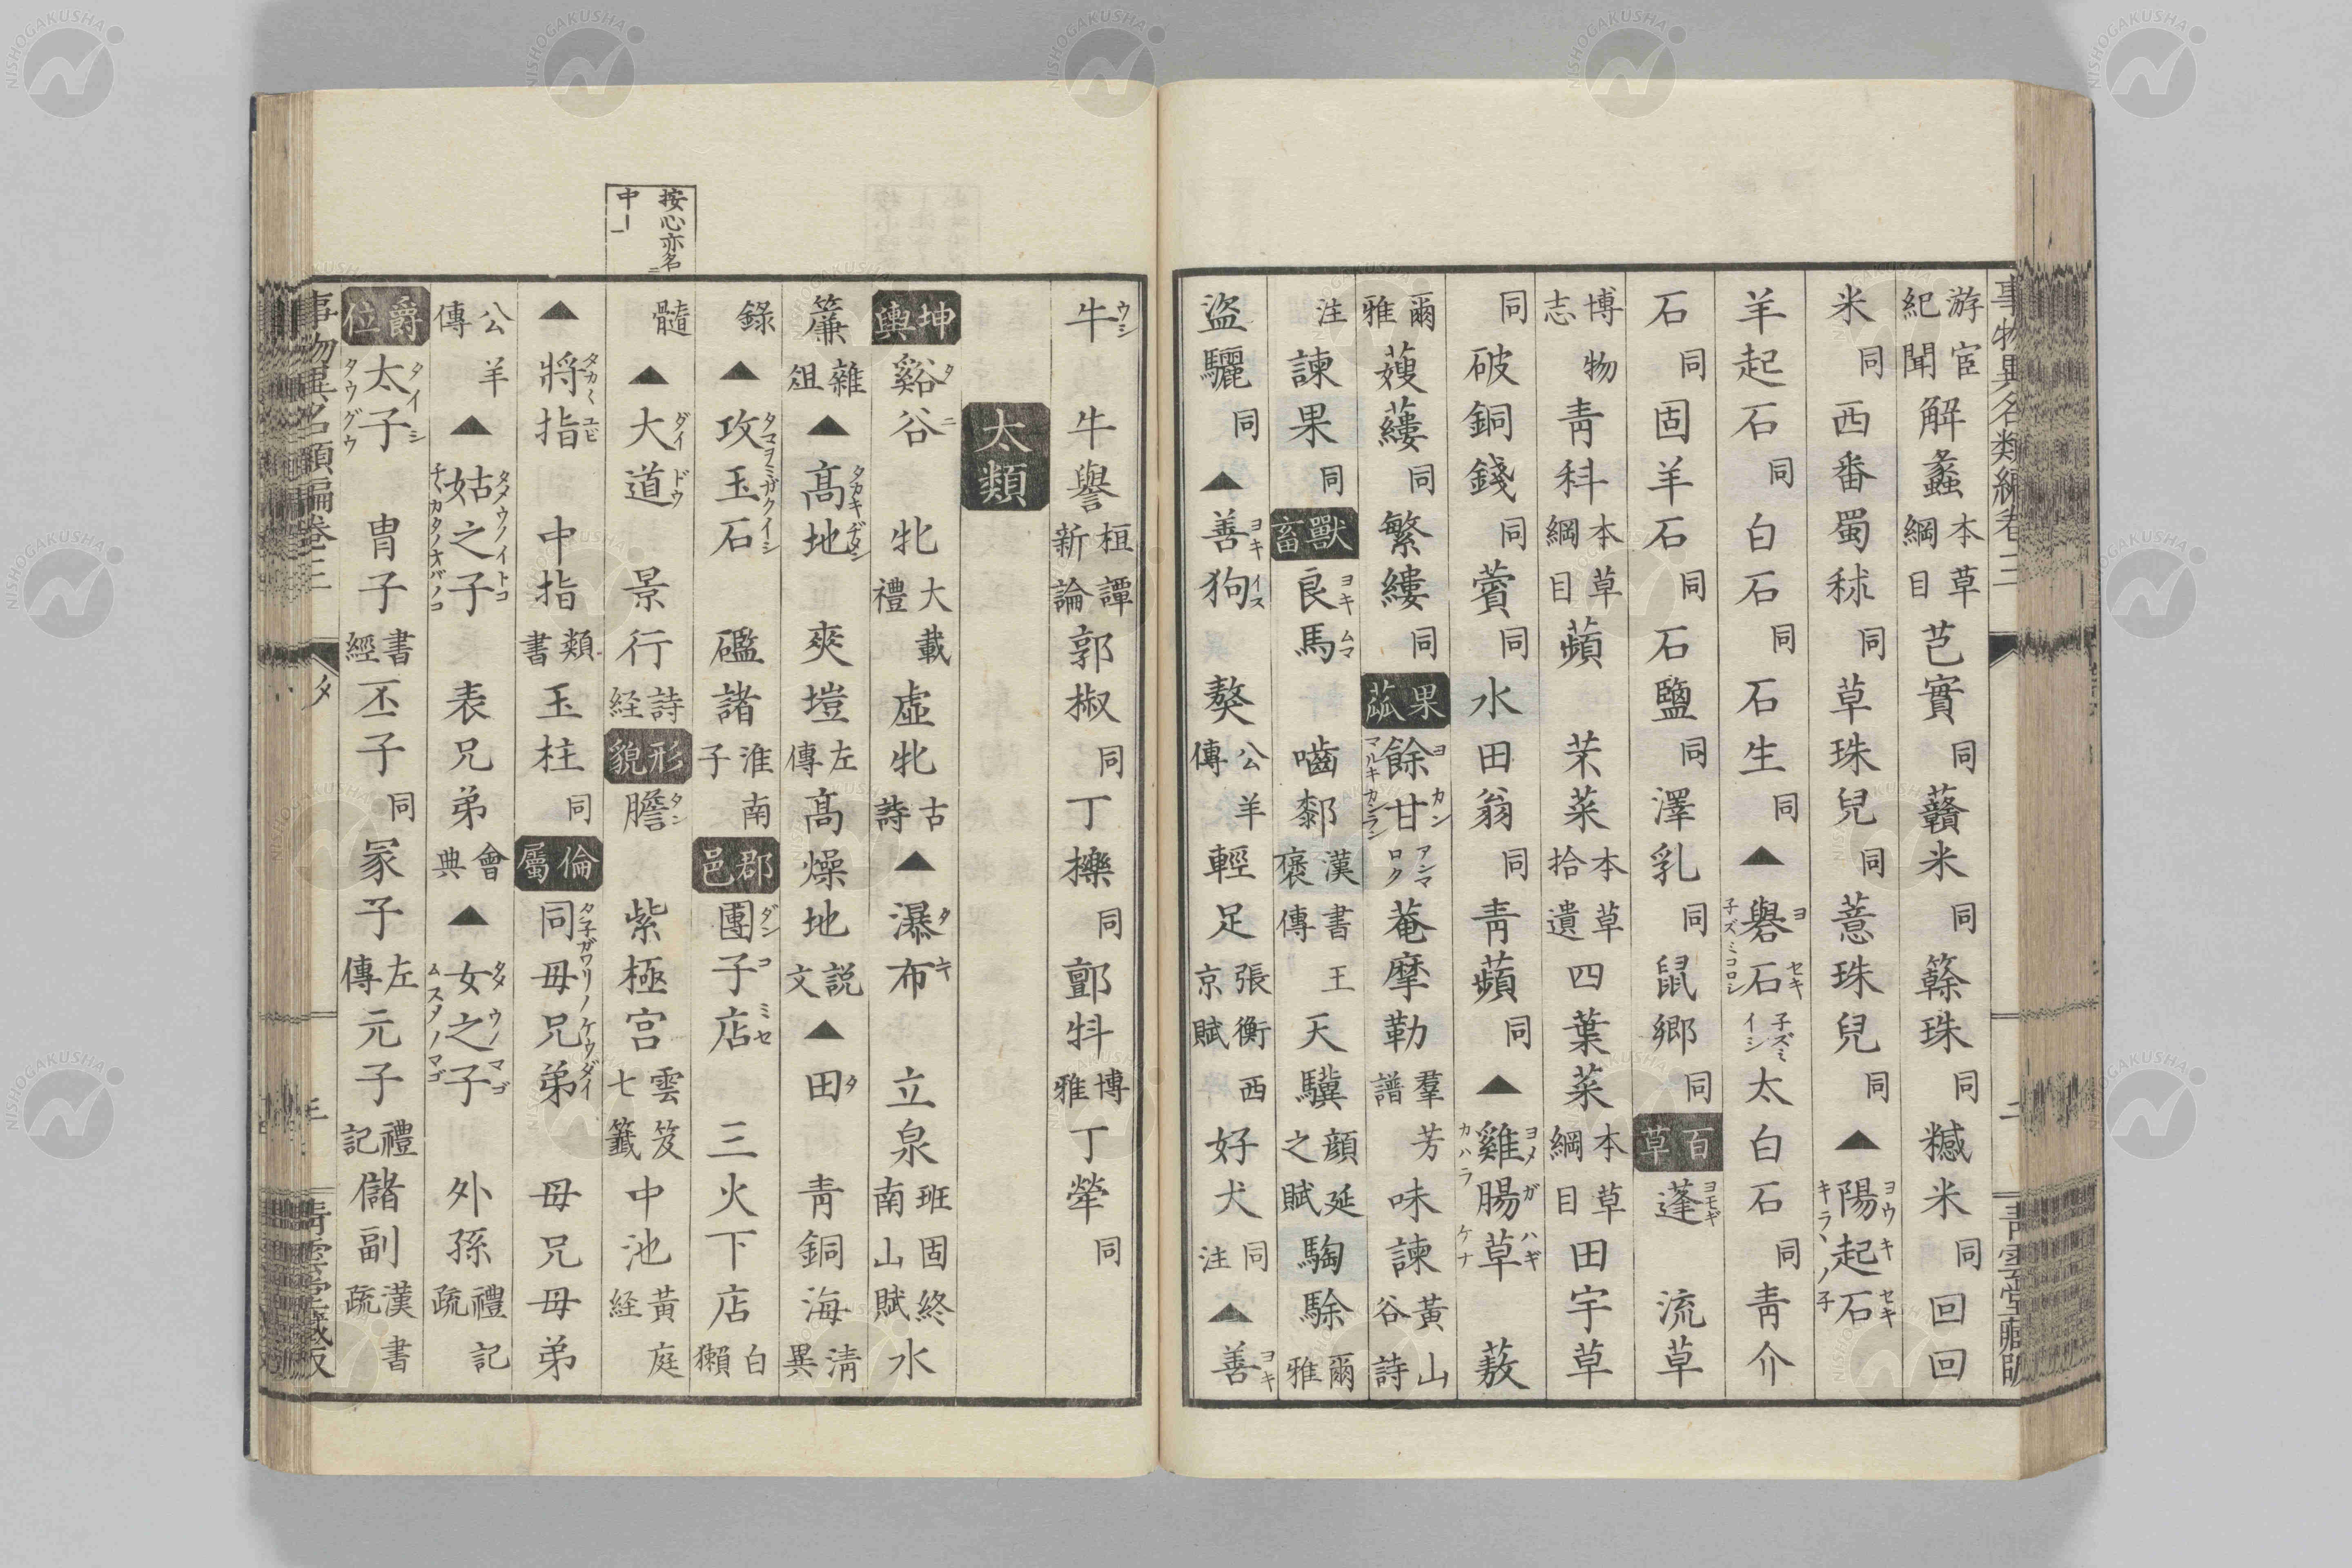 事物異名类編卷三 二 靑雲堂藏版
游宦紀聞 解蠡 本草綱目 芑實 同 贛米 同 簳珠 同 𥽇米 同 回回
米 同 西番蜀秫 同 草珠兒 同 薏珠兒 同 ▲陽起石 ヨウキセキ キラヽノ子
羊起石 同 白石 同 石生 同 ▲礜石 ヨセキ 子ズミコロシ 子ズミイシ 太白石 同 靑介
石 同 固羊石 同 石鹽 同 澤乳 同 鼠郷 同 百草 蓬 ヨモギ 流草
博物志 物 靑科 本草綱目 蘋 芣菜 本草拾遺 四葉菜 本草綱目 田字草
同 破銅錢 同 薲 同 水田翁 同 靑蘋 同 ▲雞腸草 ヨメガハギ カハラケナ 蔜
爾雅 蔆䕯 同 繁縷 同 果蓏 餘甘 ヨカン マルキカンラン アンマロク 菴摩勒 羣芳譜 味諫 黃山谷詩
注 諫果 同 獸畜 良馬 ヨキムマ 嚙䣛 漢書王褒傳 天驥 顏延之賦 騊駼 爾雅
盜驪 同 ▲善狗 ヨキイヌ 獒 公羊傳 輕足 張衡西京賦 好犬 同注 ▲善 ヨキ
牛 ウシ 牛譽 桓譚新論 郭椒 同 丁櫟 同 𤛆牪 博雅 丁犖 同
太類
坤輿 谿谷 タニ 牝 大戴禮 虛牝 古詩 ▲瀑布 タキ 立泉 班固終南山賦 水
簾 雜俎 ▲髙地 タカキヂメン 爽塏 左傳 髙燥地 說文 ▲田 タ 靑銅海 淸異
錄 ▲攻玉石 タマヲミガクイシ 礛諸 淮南子 郡邑 團子店 ダンコミセ 三火下店 白獺
髓 ▲大道 ダイドウ 景行 詩経 形貌 膽 タン 紫極宮 雲笈七籤 中池 黃庭経
按心亦名ニ中ー一
▲將指 タカミユビ 中指 類書 玉柱 同 倫屬 同母兄弟 タ子ガワリノケウダイ 母兄母弟
公羊傳 ▲姑之子 タメウノイトコ チヽカタノオバノコ 表兄弟 會典 ▲女之子 タメウノマゴ ムスメノマゴ 外孫 禮記疏
爵位 太子 タイシ タウグウ 冑子 書經 丕子 同 冢子 左傳 元子 禮記 儲副 漢書疏
事物異名類編卷三 タ 三 靑雲堂藏版